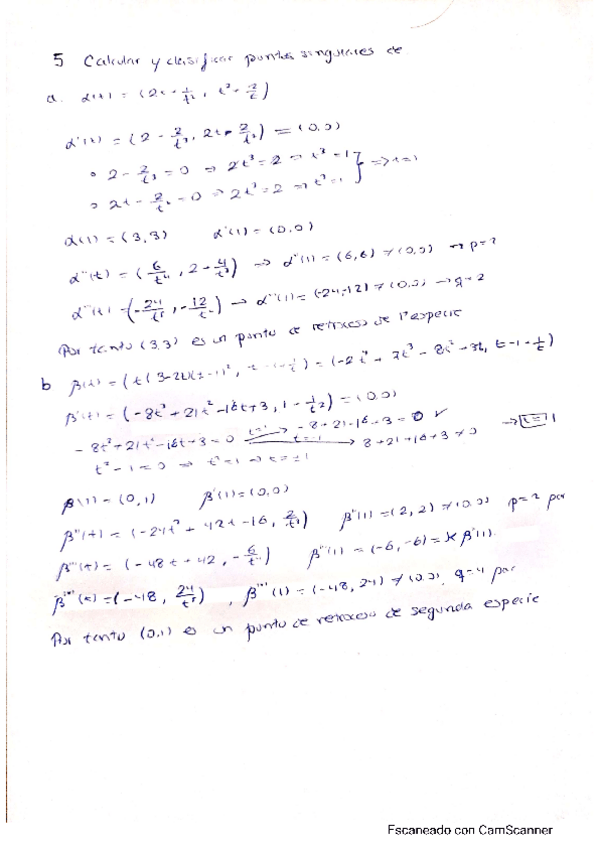 5 Calcular y clasificar puntos singulares de
a. α(t) = (2t + 1/t², t² + 2/t)
α'(t) = (2 - 2/t³, 2t - 2/t²) = (0,0)
• 2 - 2/t³ = 0 ⇒ 2t³ = 2 ⇒ t³ = 1
• 2t - 2/t² = 0 ⇒ 2t³ = 2 ⇒ t³ = 1 } ⇒ t = 1
α(1) = (3,3) α'(1) = (0,0)
α''(t) = (6/t⁴, 2 + 4/t³) → α''(1) = (6,6) ≠ (0,0) → p = 2
α'''(t) = (-24/t⁵, -12/t⁴) → α'''(1) = (-24,-12) ≠ (0,0) → q =
Por tanto (3,3) es un punto de retroceso de 1ª especie
b β(t) = (t(3-2t)(t-1)², ) = (-2t⁴ + 7t³ - 8t² + 3t, t - 1 + 1/t)
β'(t) = (-8t³ + 21t² - 16t + 3, 1 - 1/t²) = (0,0)
-8t³ + 21t² - 16t + 3 = 0 t=1 → -8 + 21 - 16 + 3 = 0 ✓
t=-1 → 8 + 21 + 16 + 3 ≠ 0 → t=1
t² - 1 = 0 ⇒ t² = 1 ⇒ t = ±1
β(1) = (0,1) β'(1) = (0,0)
β''(t) = (-24t² + 42t - 16, 2/t³) β''(1) = (2,2) ≠ (0,0) p = 2 par
β'''(t) = (-48t + 42, -6/t⁴) β'''(1) = (-6,-6) = β''(1).
(t) = (-48, 24/t⁵), (1) = (-48, 24) ≠ (0,0), q = 4 par
Por tanto (0,1) es un punto de retroceso de segunda especie
Escaneado con CamScanner